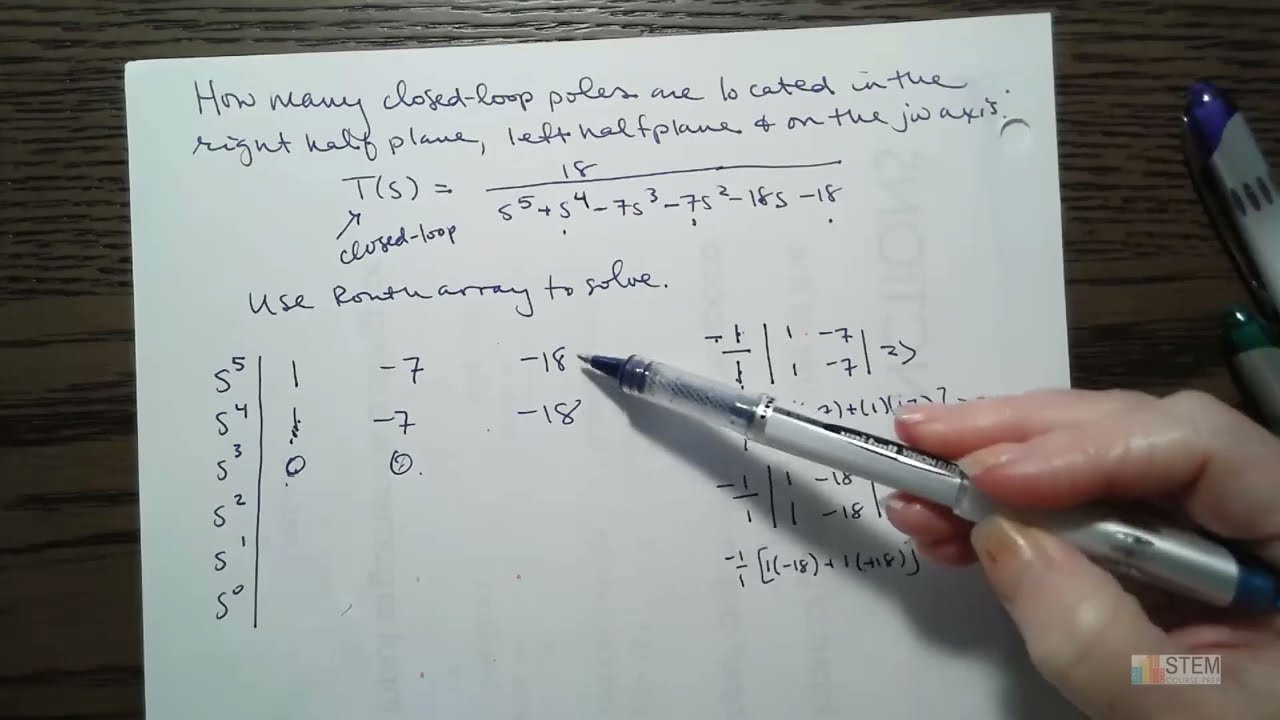 How many closed-loop poles are located in the
right half plane, left half plane & on the jw axis.
T(s) = 18
s⁵+s⁴-7s³-7s²-18s-18
closed-loop
Use Routh array to solve.
s⁵ 1 -7 -18
s⁴ 1 -7 -18
s³ 0 0
s²
s¹
s⁰
-1/1 | 1 -7 | =>
1 -7
+(1)(
-1/1 | 1 -18 |
1 -18
-1/1 [1(-18)+1(+18)]
uni-ball VISION ELITE
STEM
COURSE PREP